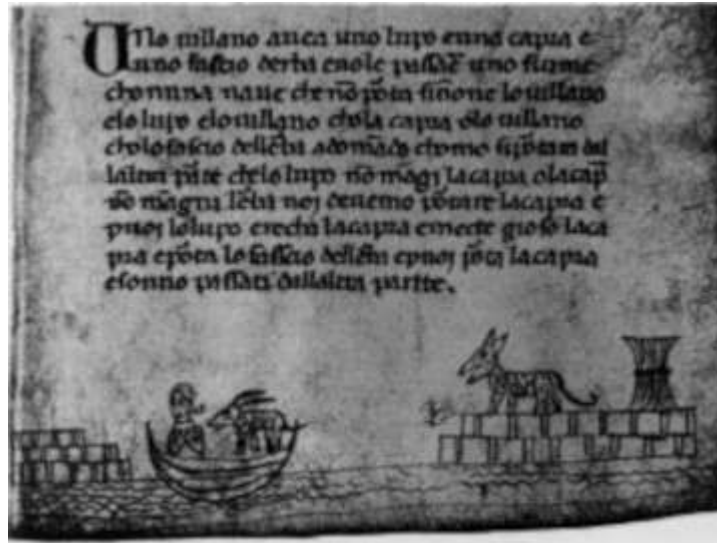 Uno uillano auea uno lupo enna capra e
uno fascio derba enole passar uno fiume
chonuna naue che nō pōta sinone lo uillano
elo lupo elouillano chola capra olo uillano
cholo fascio dellerba adomādo chomo
laltra parte chelo lupo nō māgi lacapra olacapra
nō mangi lerba noi deuemo portare lacapra e
puoi lolupo erecha lacapra emecte gioso laca
pra eporta lo fascio dellerba epuoi porta lacapra
esonno passati dallaltra partte.